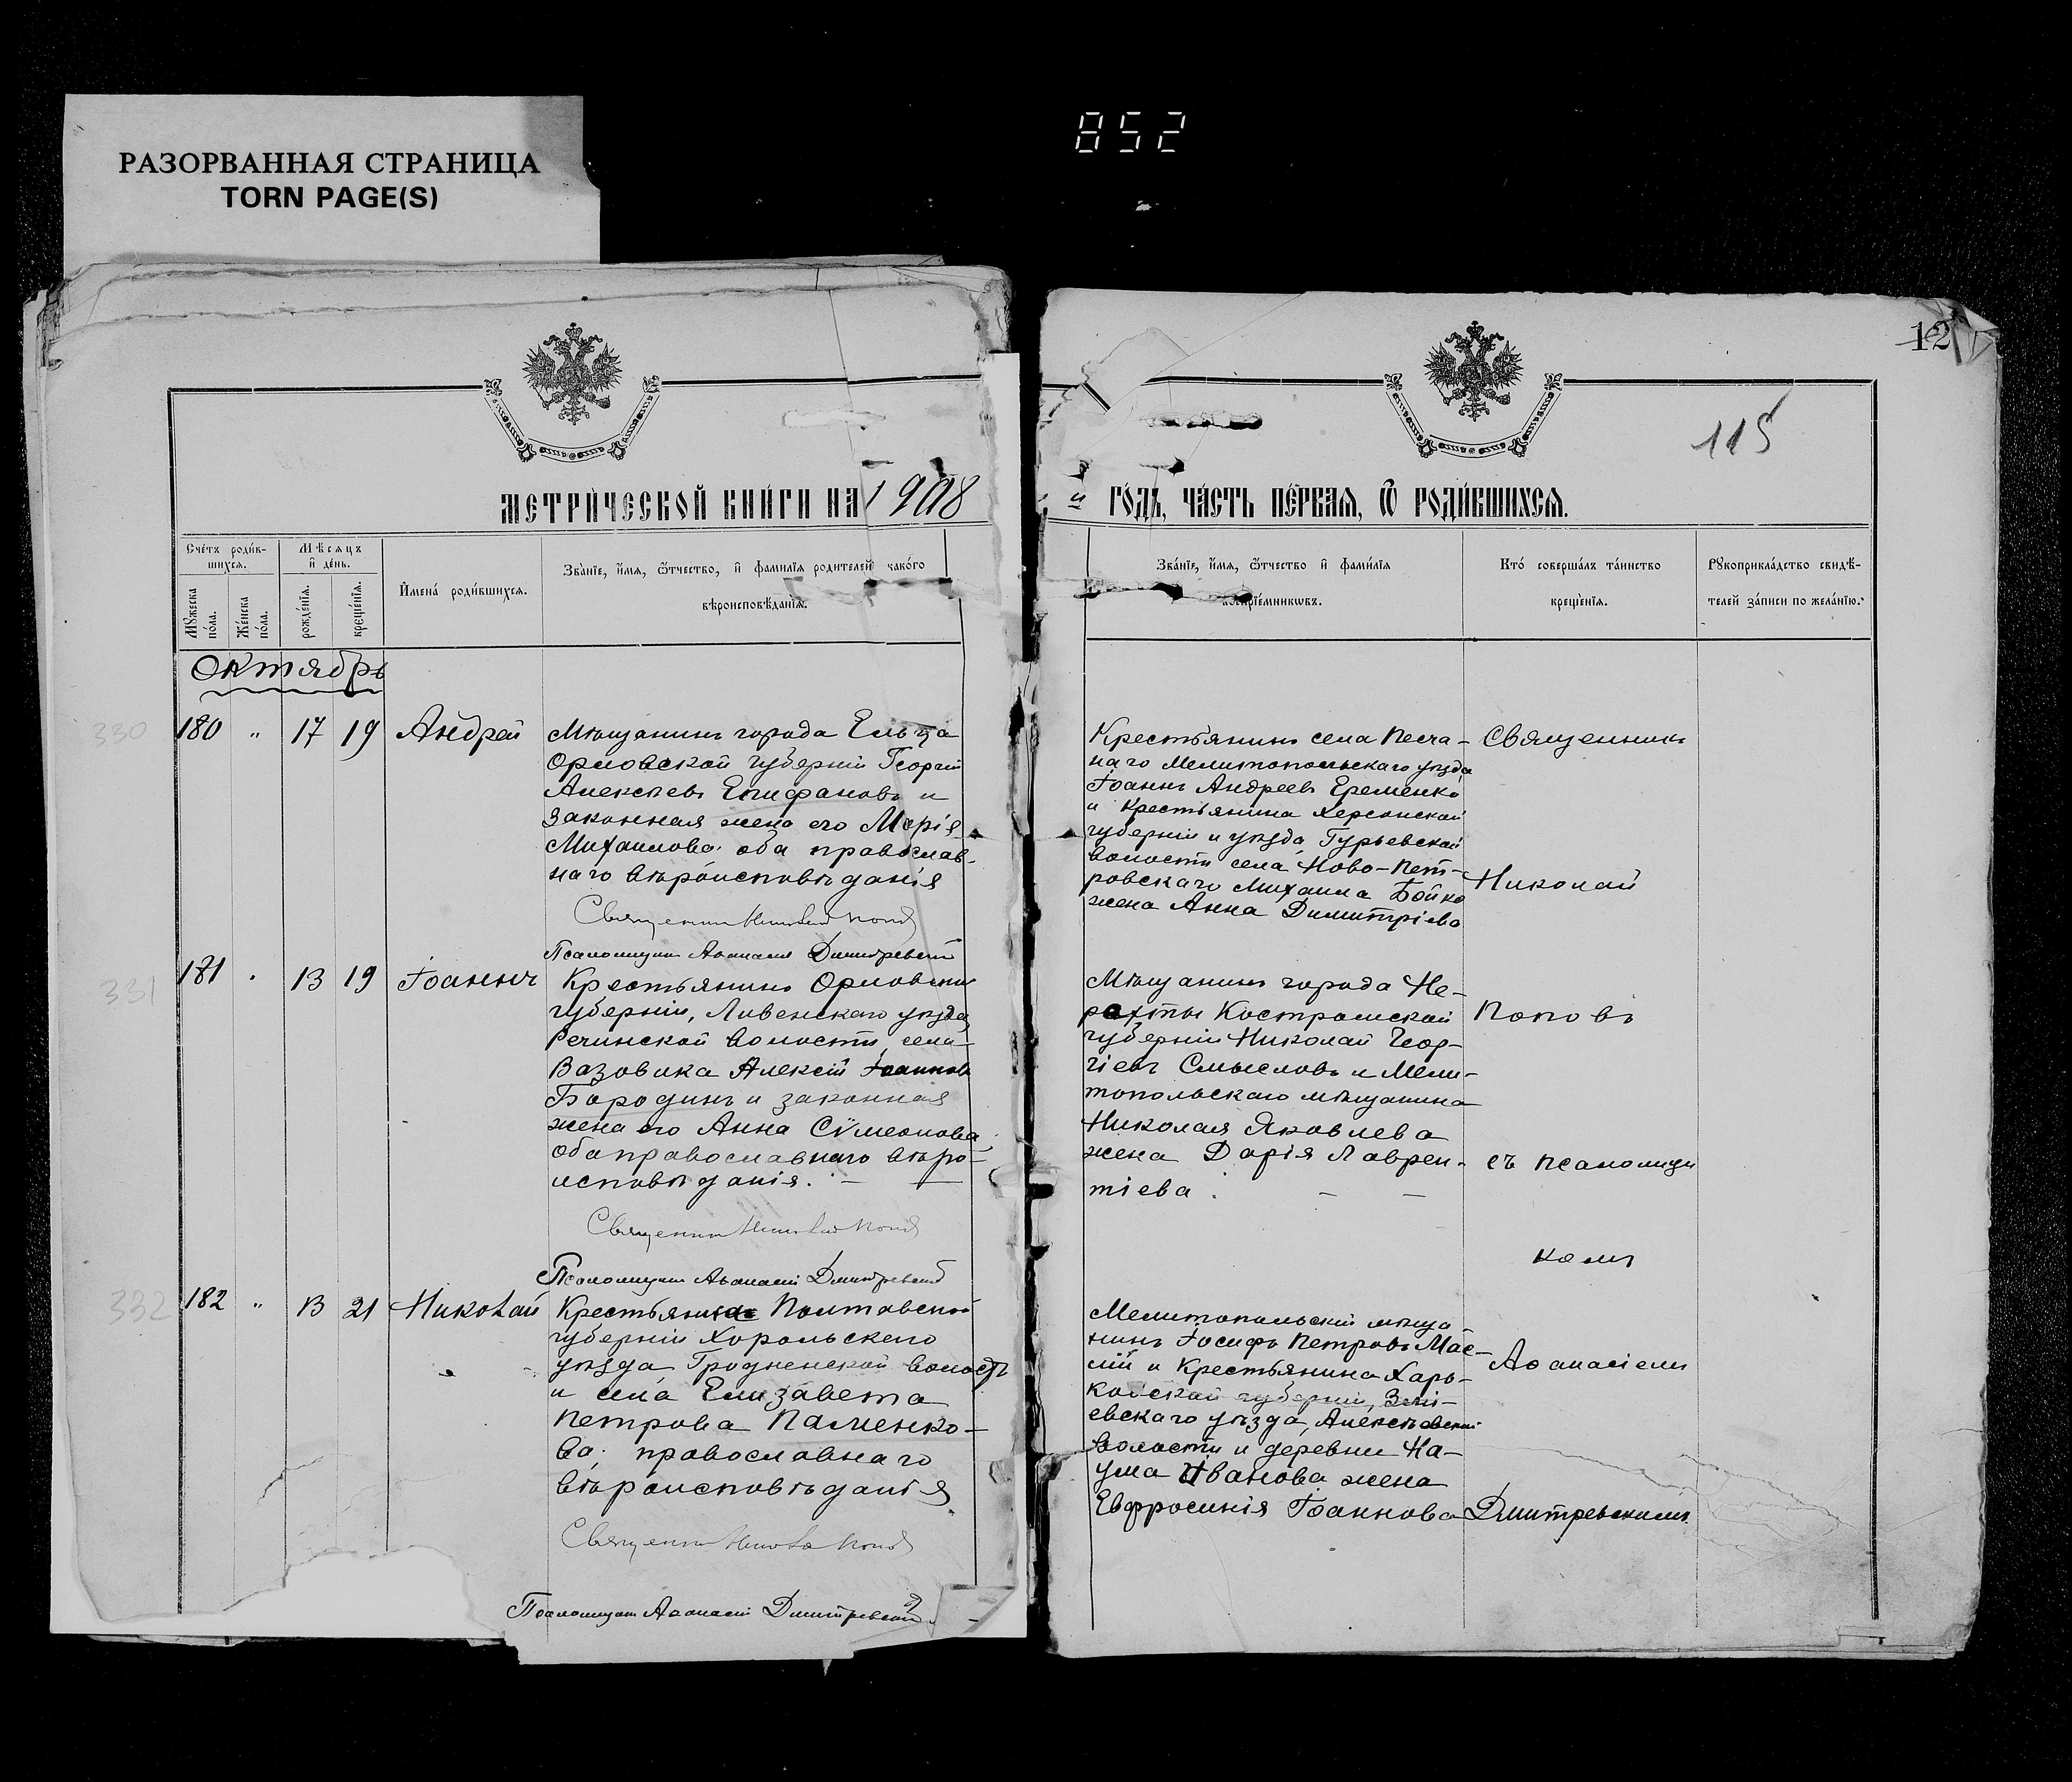 852
РАЗОРВАННАЯ СТРАНИЦА
TORN PAGE(S)
12
115
МЕТРИ́ЧЕСКОЙ КНИ́ГИ НА 1908
ГО́ДЪ, ЧА́СТЬ ПЕ́РВАЯ, Ѡ РОДИ́ВШИХСЯ.
Сче́тъ роди́в-
шихся.
Мѣсяцъ
и де́нь.
Мꙋ́жеска
по́ла.
Же́нска
по́ла.
рожде́нїя.
креще́нїя.
Имена́ роди́вшихся.
Зва́нїе, и́мя, ѻ́тчество, и фами́лїя родителей како́го
вѣроисповѣ́данїя.
Зва́нїе, и́мя, ѻ́тчество и фами́лїя
Кто́ соверша́лъ та́инство
креще́нїя.
Рꙋкоприкла́дство свидѣ́-
телей за́писи по жела́нїю.
Октябрь
330 180 " 17 19 Андрей
Мѣщанинъ города Ельца
Орловской губерніи Георгій
Алексѣевъ Епифановъ и
законная жена его Марія
Михаилова оба православ-
наго вѣроисповѣданія
Священник Николай Попов
Псаломщик Афанасий Дмитревский
Крестьянинъ села Песча-
наго Мелитопольскаго уѣзда
Іоаннъ Андреевъ Еременко
и крестьянина Херсонской
губерніи и уѣзда Гурьевской
волости села Ново-Пет-
ровскаго Михаила Бойко
жена Анна Димитріева
Священникъ
Николай
331 181 " 13 19 Іоаннъ
Крестьянинъ Орловской
губерніи, Ливенскаго уѣзда,
Речинской волости, села
Вазовика Алексій Іоанновъ
Бородинъ и законная
жена его Анна Сѵмеонова
оба православнаго вѣро-
исповѣданія. —
Священник Николай Попов
Псаломщик Афанасий Дмитревский
Мѣщанинъ города Не-
рехты Костромской
губерніи Николай Геор-
гіевъ Смысловъ и Мели-
топольскаго мѣщанина
Николая Яковлева
жена Дарія Лаврен-
тіева. — —
Поповъ
съ псаломщи
комъ
332 182 " 13 21 Николай
Крестьянка Полтавской
губерніи Хорольскаго
уѣзда Гродненской волости
и села Елизавета
Петрова Паменко-
ва православнаго
вѣроисповѣданія
Священник Николай Попов
Псаломщик Афанасий Дмитревский
Мелитопольскій мѣща-
нинъ Іосифъ Петровъ Мас-
лій и крестьянина Харь-
ковской губерніи, Змі-
евскаго уѣзда, Алексѣевской
волости и деревни На-
ума Иванова жена
Евфросинія Іоаннова
Афанасіемъ
Дмитревскимъ.